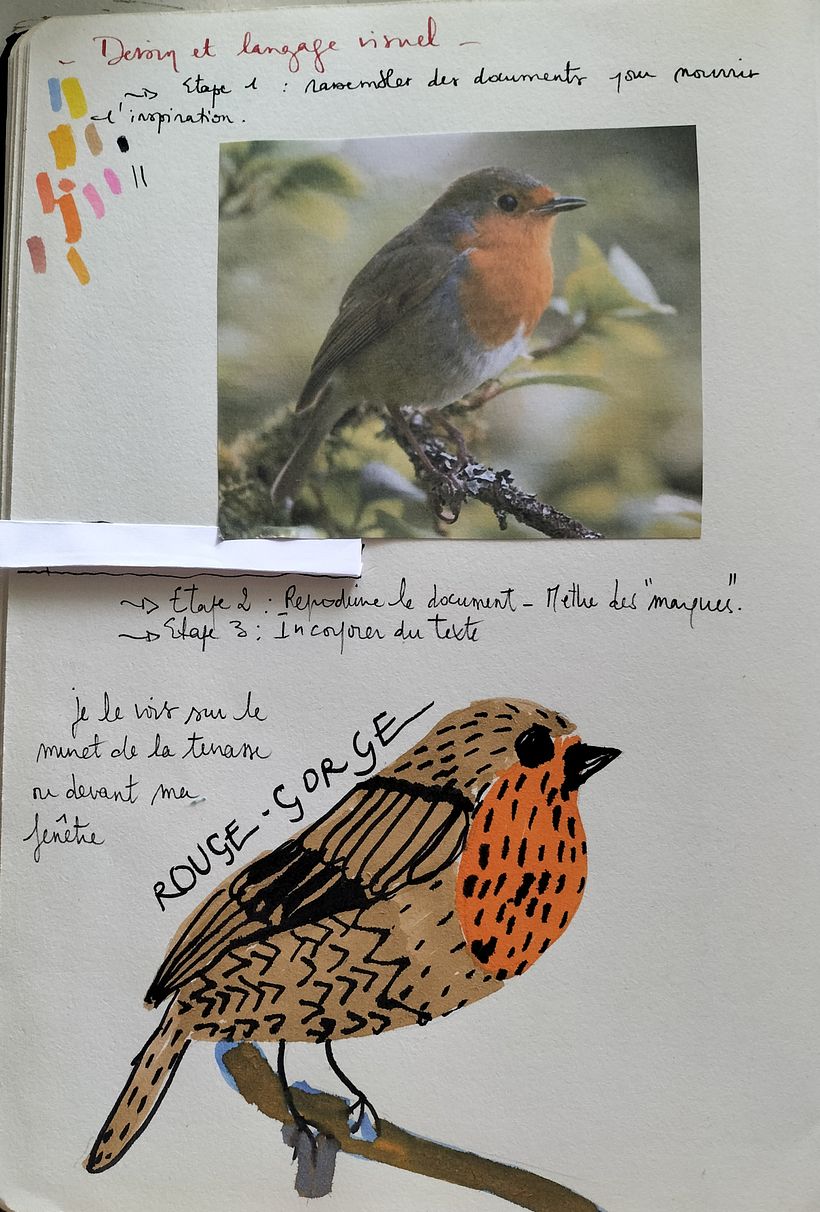 - Dessin et langage visuel -
→ Etape 1 : rassembler des documents pour nourrir
l'inspiration.
→ Etape 2 : Reproduire le document - Méthe des "marques".
→ Etape 3 : Incorporer du texte
je le vois sur le
muret de la terrasse
ou devant ma
fenêtre
ROUGE-GORGE